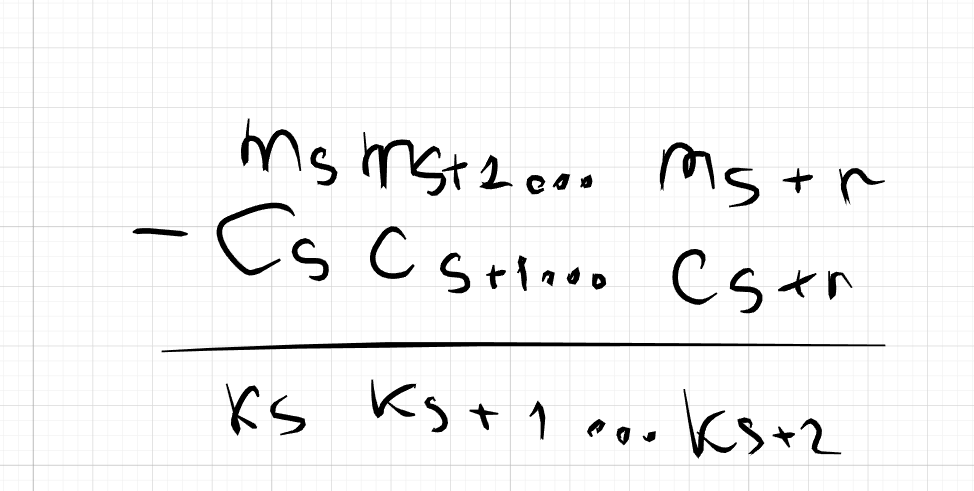 m_s m_{s+1}... m_{s+r}
- C_s C_{s+1}... C_{s+r}
K_s K_{s+1}... K_{s+2}